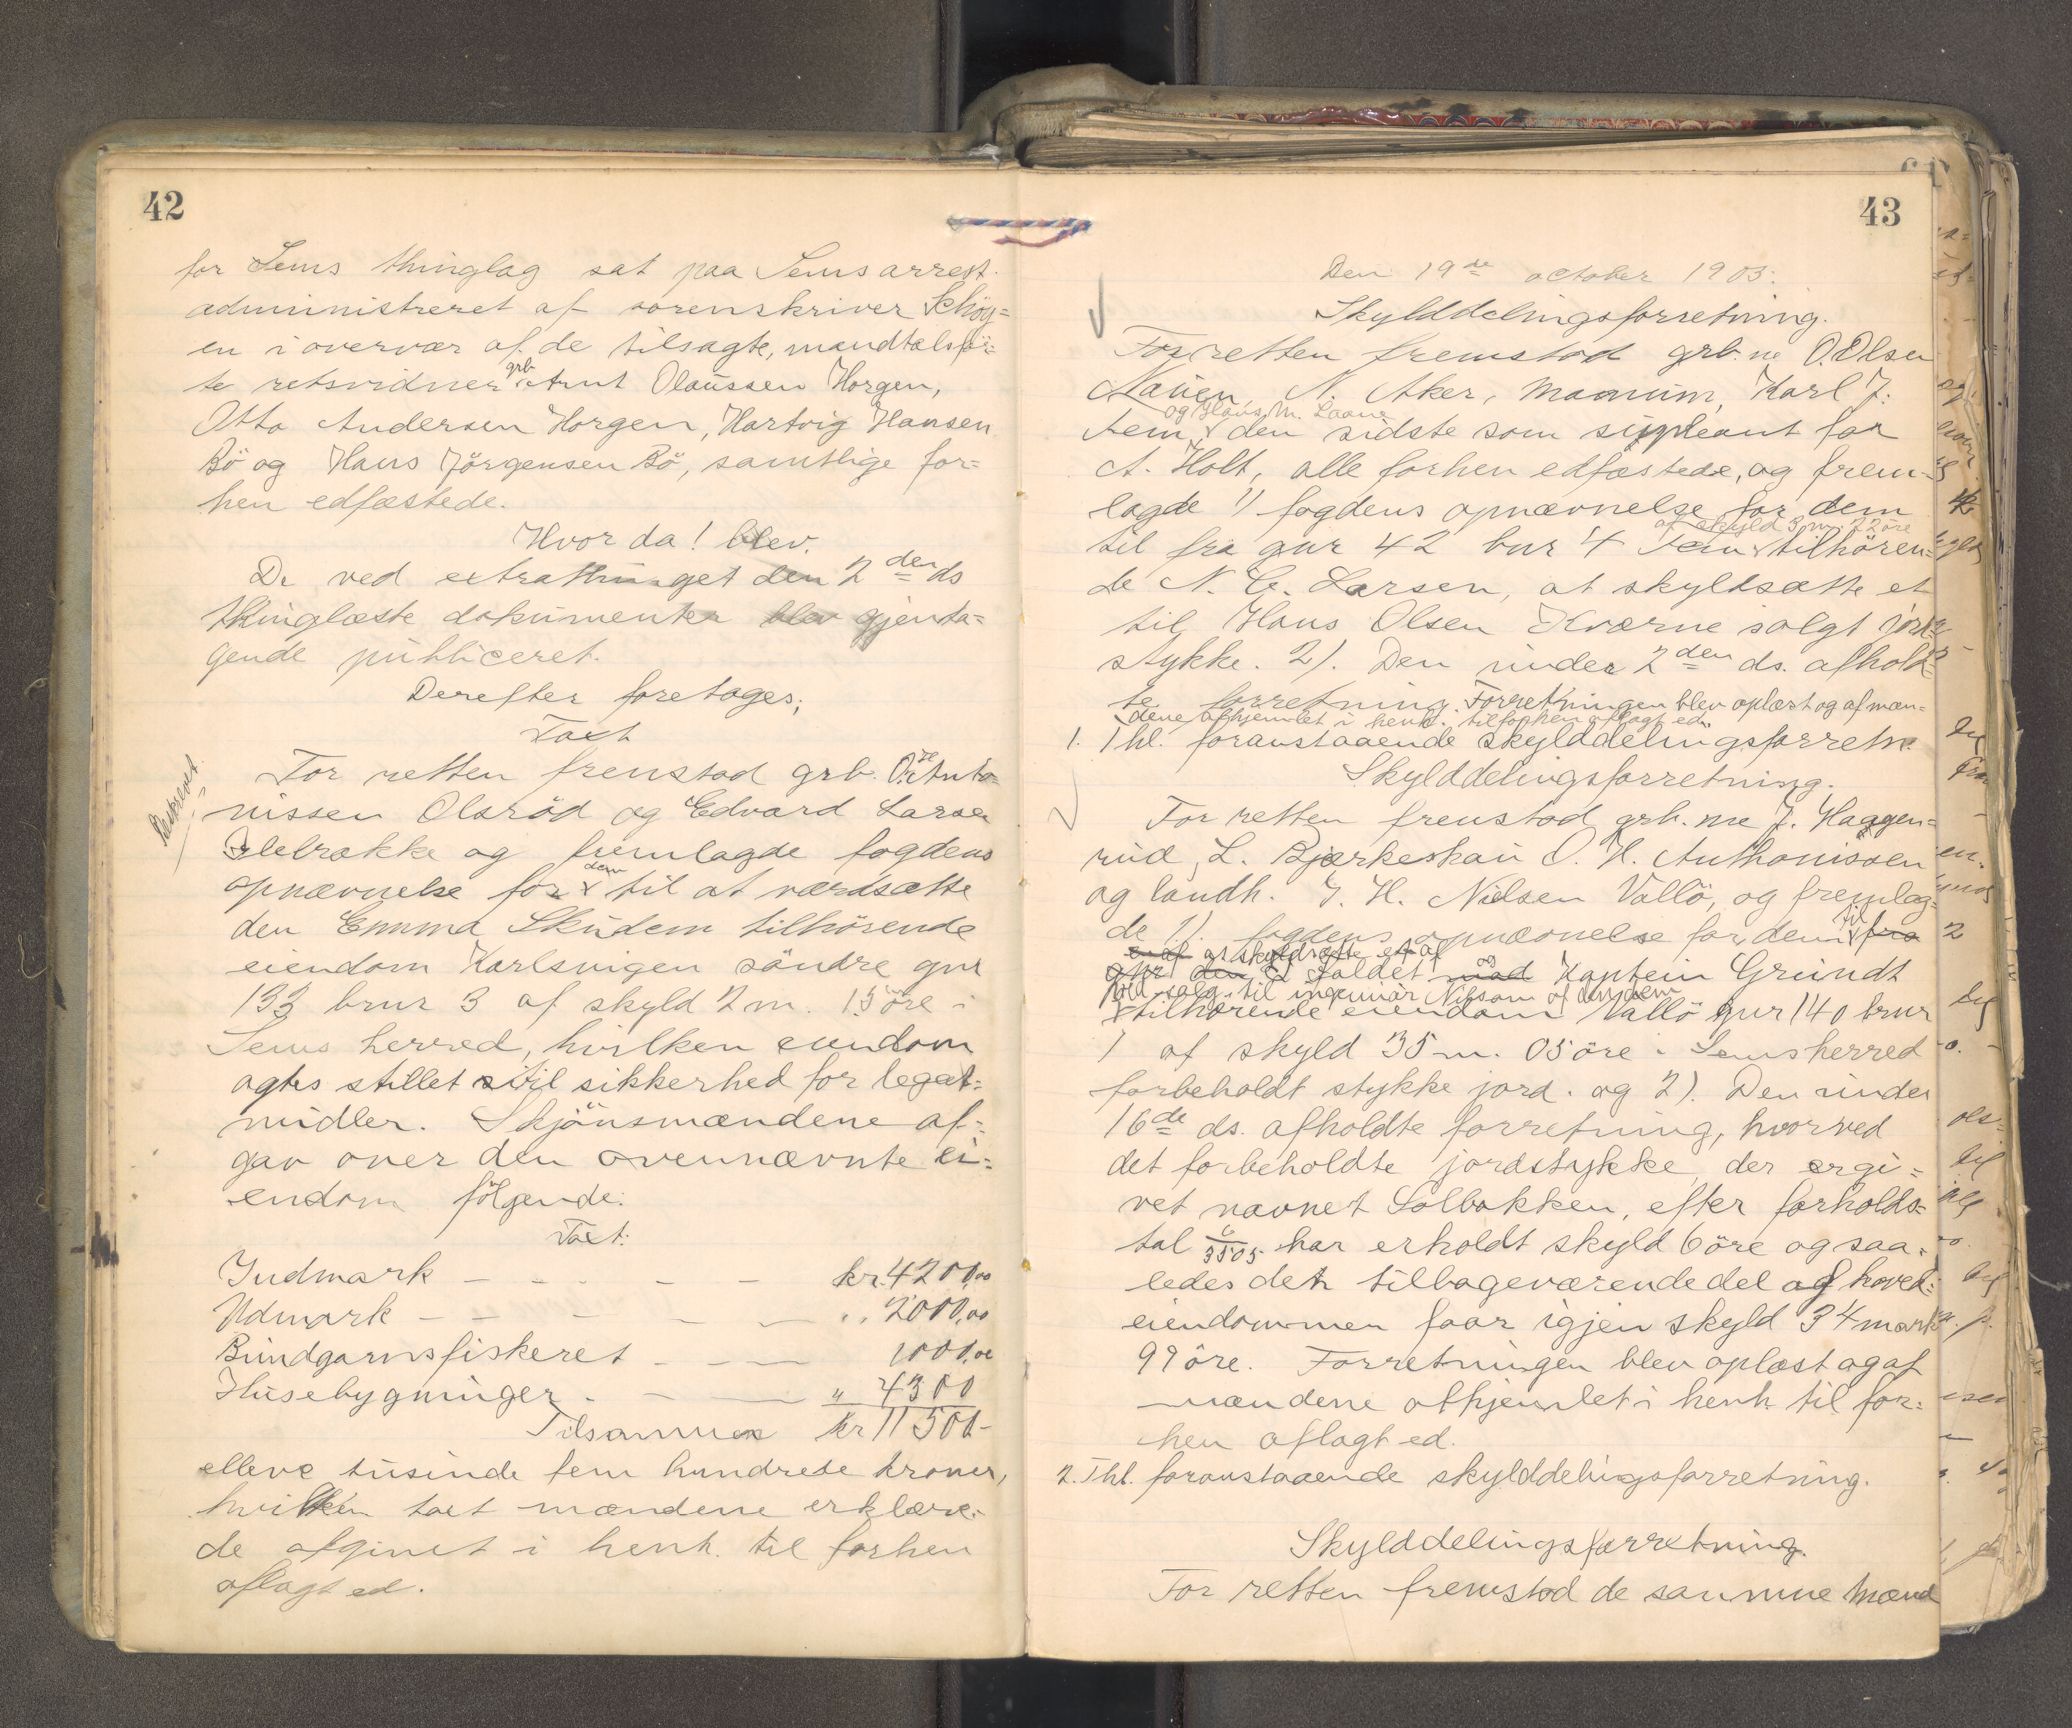 42
for Sems thinglag sat paa Sems arrest.
administreret af sorenskriver Schöy=
en i overvær af de tilsagte, mandtalsför=
te retsvidner grb. Arnt Olaussen Horgen,
Otto Andersen Horgen, Hartvig Hansen
Bö og Hans Jörgensen Bö, samtlige for=
hen edfæstede.
Hvor da! blev.
De ved extrathinget den 2den ds
thinglæste dokumenter blev gjenta=
gende publiceret.
Derefter foretages;
Taxt
Beskrevet.
For retten fremstod grb. O. H. Anto=
nissen Olsröd og Edvard Larsen
Ilebrække og fremlagde fogdens
opnævnelse for dem til at værdsætte
den Emma Skudem tilhörende
eiendom Karlsvigen söndre gnr
133 brnr 3 af skyld 2 m. 15 öre i
Sems herred, hvilken eiendom
agtes stillet til sikkerhed for legat=
midler. Skjönsmændene af=
gav over den ovennævnte ei=
endom fölgende:
Taxt:
Indmark - - - - - kr. 4200,00
Udmark - - - - - " 2000,00
Bundgarnsfiskeret - - - 1000,00
Husebygninger - - - " 4300
Tilsammen kr 11500-
elleve tusinde fem hundrede kroner,
hvilken taxt mændene erklære=
de afgivet i henh. til forhen
aflagt ed.
43
Den 19de october 1903:
Skylddelingsforretning.
For retten fremstod grb.ne O. Olsen
Nauen, N. Aker, Manum, Karl J.
og Hans M. Laane
Fem, den sidste som supleant for
A. Holt, alle forhen edfæstede, og frem=
lagde 1) fogdens opnævnelse for dem
af skyld 3 m. 22 öre
til fra gnr 42 bnr 4 Fem tilhören=
de N. C. Larsen, at skyldsætte et
til Hans Olsen Kværne solgt jord=
stykke. 2). Den under 2den ds. afhold=
te forretning. Forretningen blev oplæst og af mæn=
dene afhjemlet i henh. til forhen aflagt ed.
1. Thl. foranstaaende skylddelingsforretn.
Skylddelingsforretning.
For retten fremstod grb.ne J. Haggen=
rud, L. Bjerkeskau O. H. Anthonissen
og landh. J. H. Nielsen Vallö, og fremlag=
de 1). fogdens opnævnelse for dem til fra
at skyldsætte et af
gnr den Kaptein Grundt
ved salg til ingeniör Nilson af
tilhörende eiendom Vallö gnr 140 brnr
1 af skyld 35 m. 05 öre i Sems herred
forbeholdt stykke jord. og 2). Den under
16de ds. afholdte forretning, hvorved
det forbeholdte jordstykke, der er gi=
vet navnet Solbakken, efter forholds=
tal 6/3505 har erholdt skyld 6 öre og saa=
ledes den tilbageværende del af hoved=
eiendommen faar igjen skyld 34 mark
99 öre. Forretningen blev oplæst og af
mændene afhjemlet i henh. til for=
hen aflagt ed.
2. Thl. foranstaaende skylddelingsforretning.
Skylddelingsforretning.
For retten fremstod de samme mænd